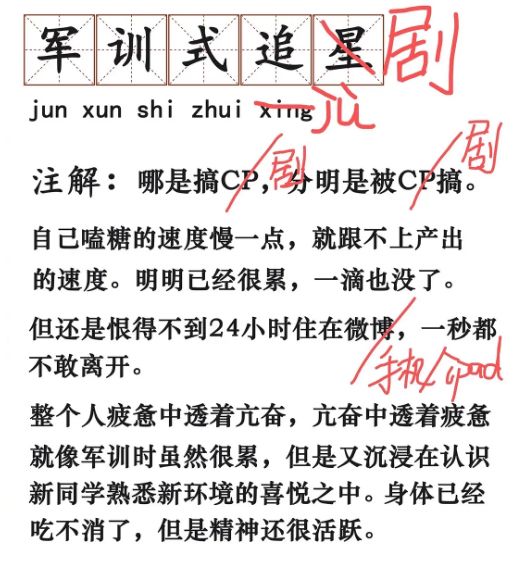 军训式追星剧
jun xun shi zhui xing jù
注解：哪是搞CP剧，分明是被CP剧搞。
自己嗑糖的速度慢一点，就跟不上产出
的速度。明明已经很累，一滴也没了。
但还是恨得不到24小时住在微博，一秒都
手机/ipad
不敢离开。
整个人疲惫中透着亢奋，亢奋中透着疲惫
就像军训时虽然很累，但是又沉浸在认识
新同学熟悉新环境的喜悦之中。身体已经
吃不消了，但是精神还很活跃。